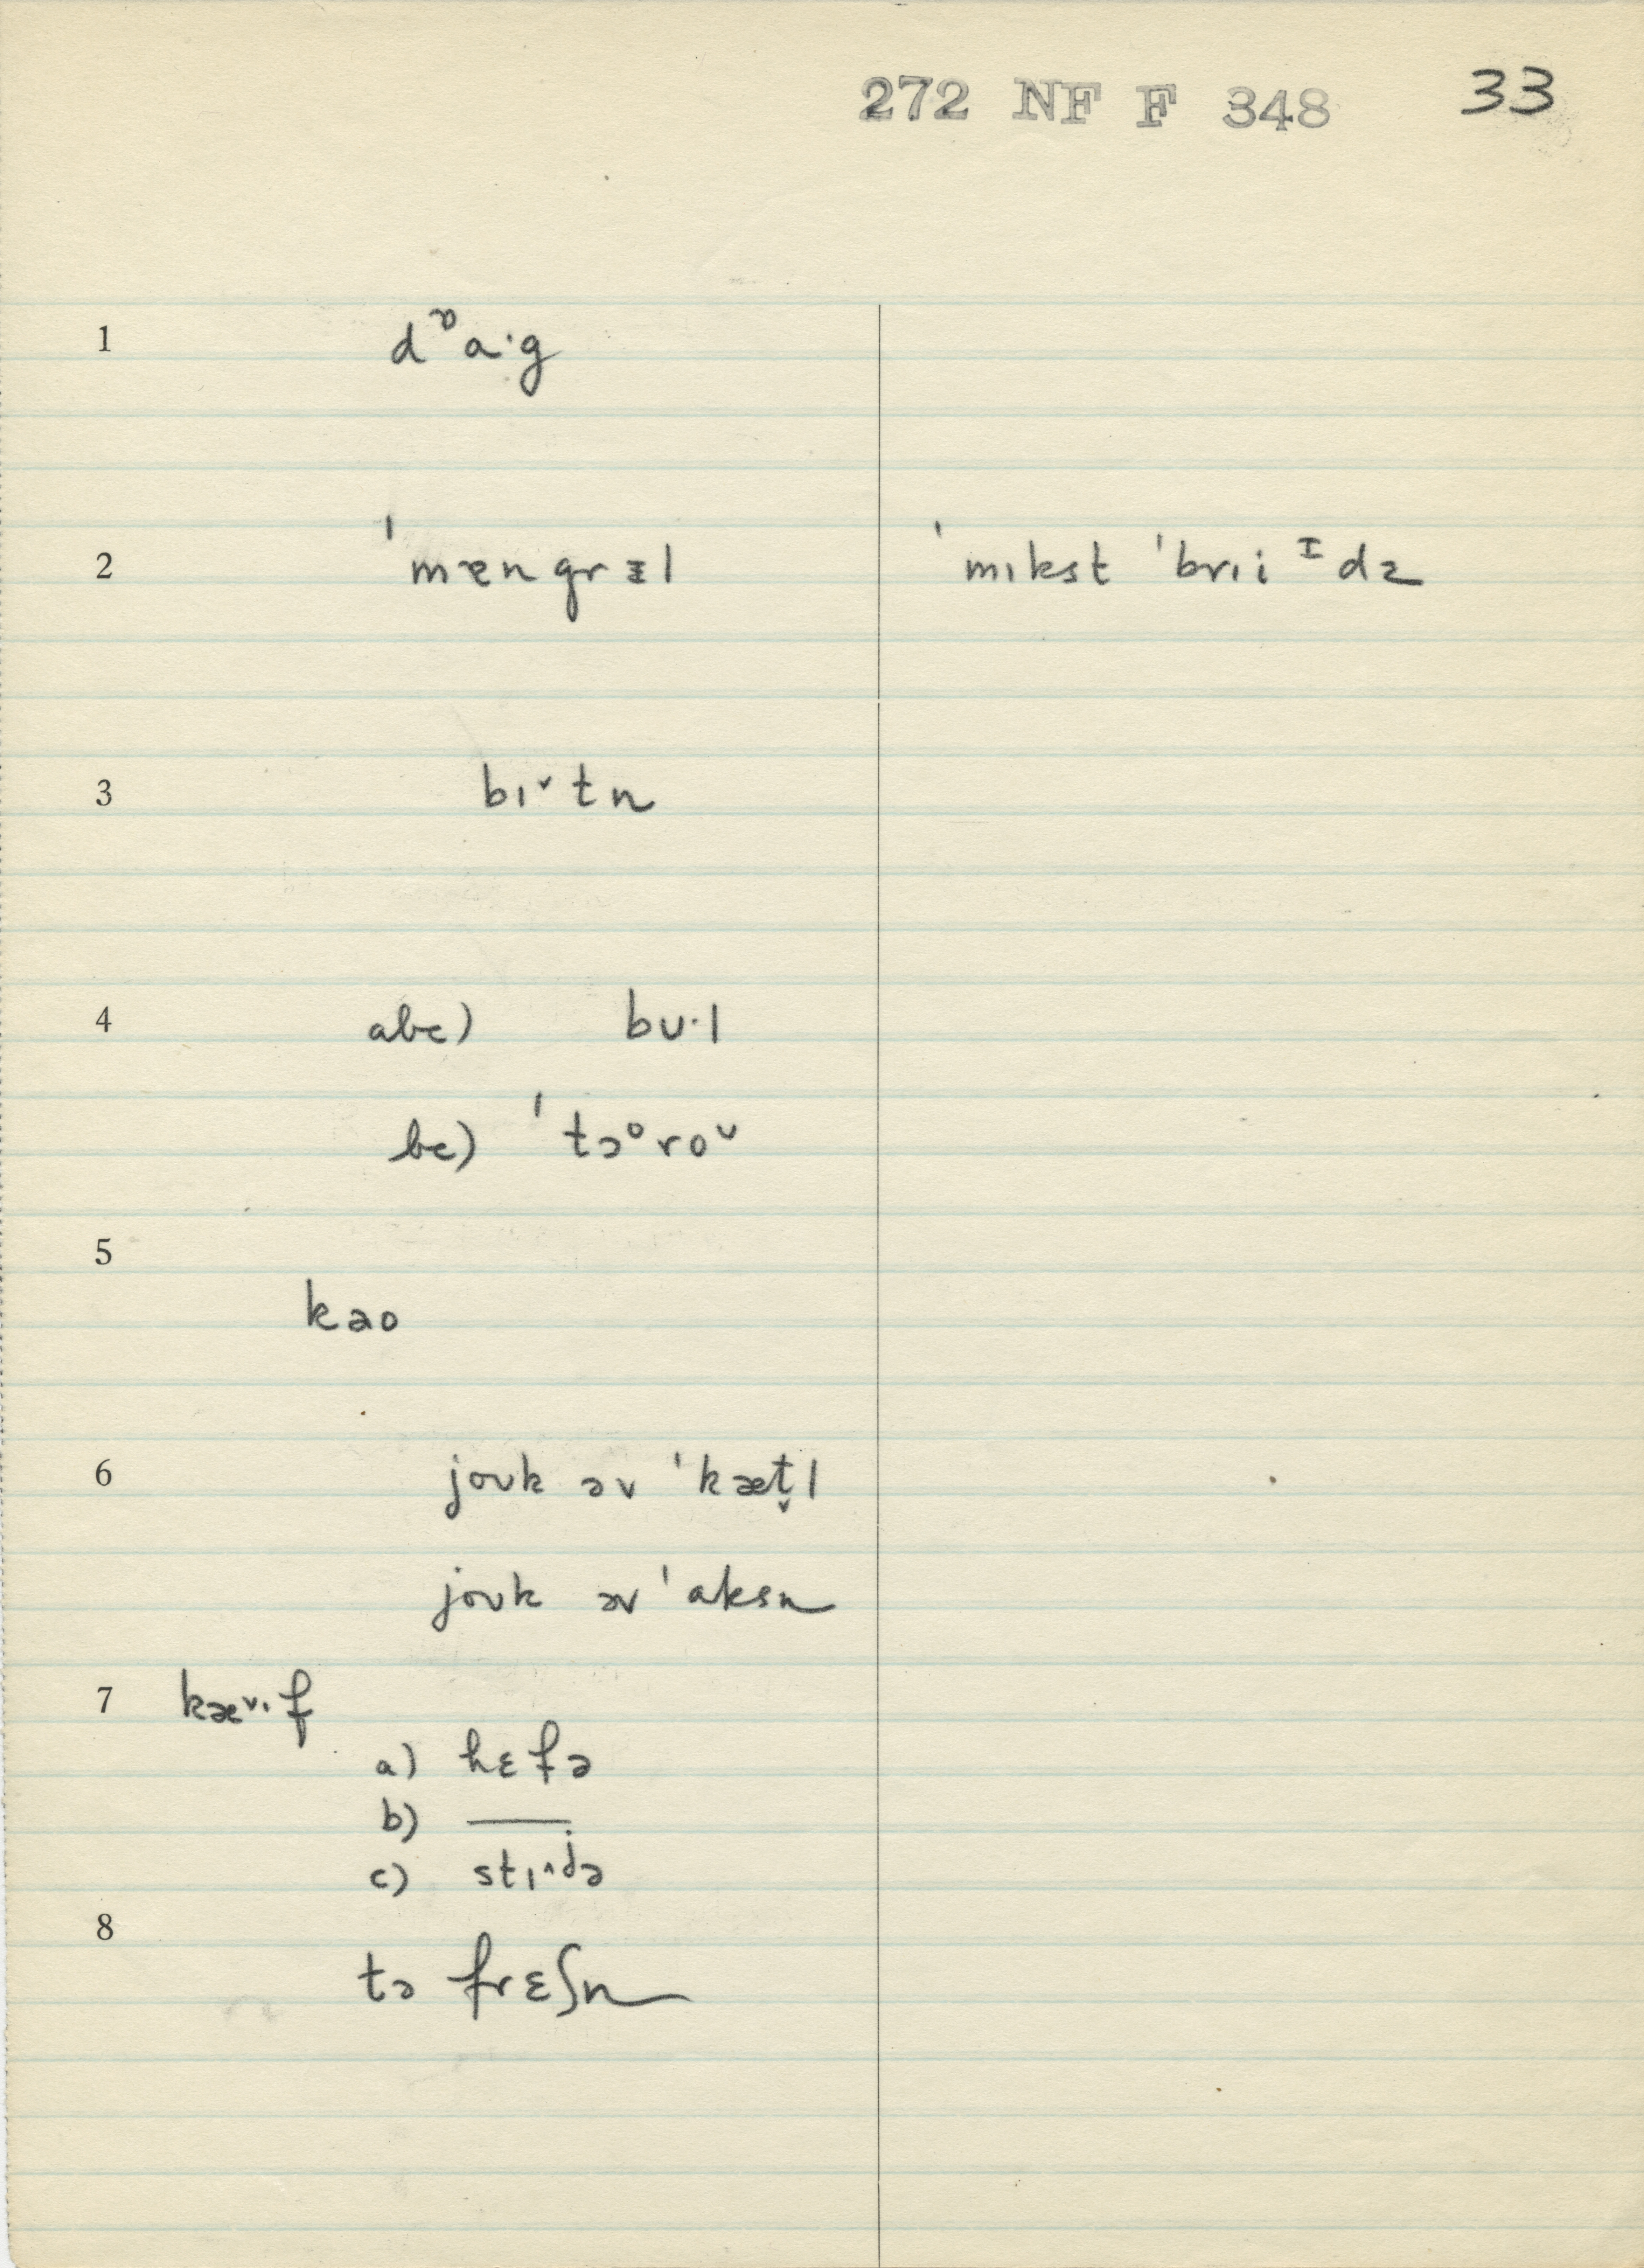 272 NF F 348 33
1 dᶹa·g
2 ˈmæn grɪ̵l ˈmɪkst ˈbrɪi ᶦdz
3 bɪ˅tn
4 abc) bʊ·l
bc) ˈtɔᵒroᶸ
5
kao
6 joʊk əv ˈkæt̬l
joʊk əv ˈaksn
7 kæ˅·f
a) hɛfə
b) ——
c) stɪ˄də
8
tə frɛʃn